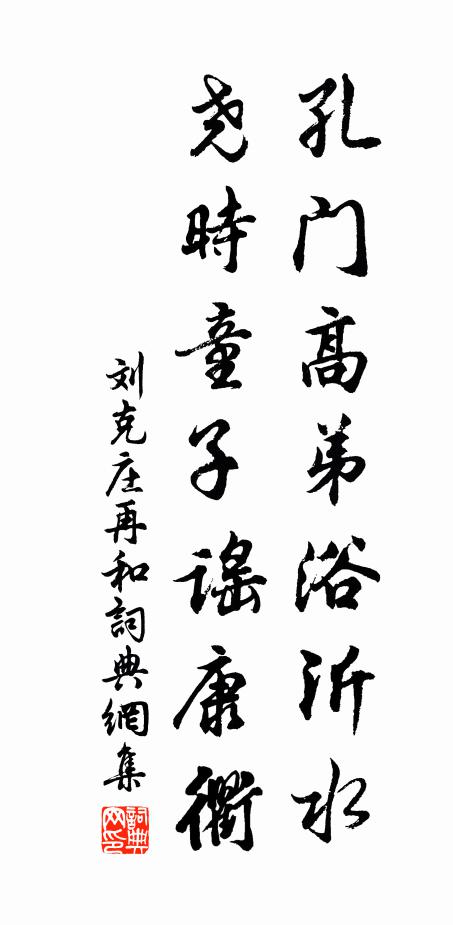 孔门高弟浴沂水
尧時童子謡康衢
刘克庄再和詞典網集
詞典网印